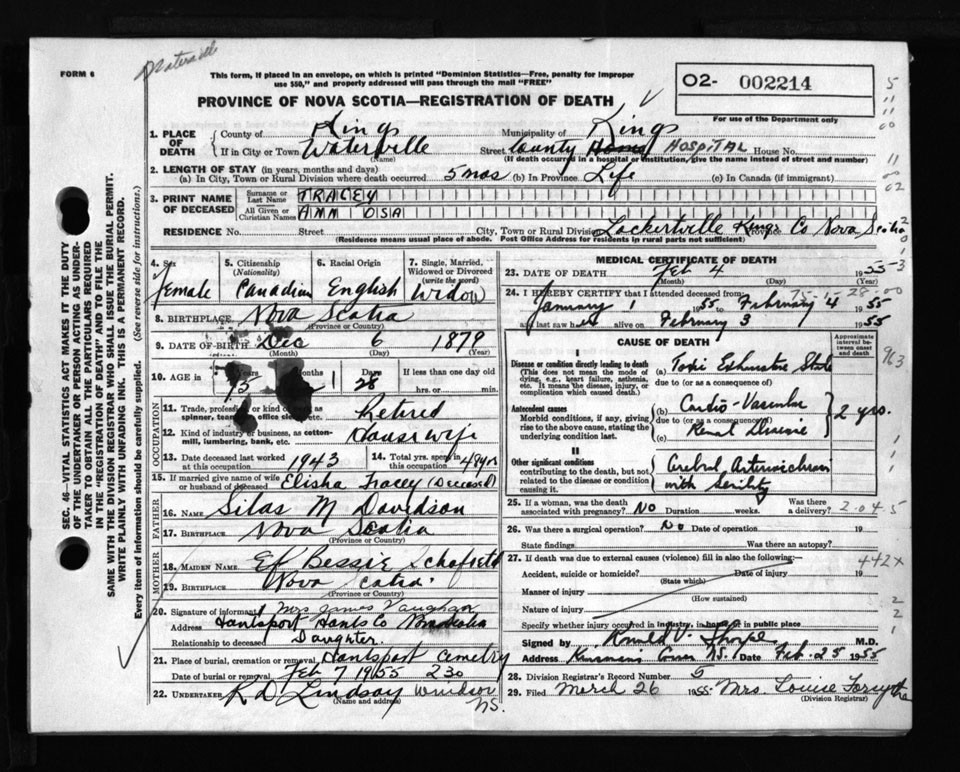 Waterville
FORM 6
This form, if placed in an envelope, on which is printed "Dominion Statistics—Free, penalty for improper
use $50," and properly addressed will pass through the mail "FREE"
O2- 002214
PROVINCE OF NOVA SCOTIA—REGISTRATION OF DEATH
For use of the Department only
1. PLACE OF DEATH County of Kings Municipality of Kings
If in City or Town Waterville (Name) Street County Home HOSPITAL House No.
(If death occurred in a hospital or institution, give the name instead of street and number)
2. LENGTH OF STAY (in years, months and days)
(a) In City, Town or Rural Division where death occurred 5 mos (b) In Province Life (c) In Canada (if immigrant)
3. PRINT NAME OF DECEASED Surname or Last Name TRACEY
All Given or Christian Names ANN OSA
RESIDENCE No. Street City, Town or Rural Division Lockertville Kings Co Nova Scotia
(Residence means usual place of abode. Post Office Address for residents in rural parts not sufficient)
4. Sex Female
5. Citizenship (Nationality) Canadian
6. Racial Origin English
7. Single, Married, Widowed or Divorced (write the word) Widow
8. BIRTHPLACE Nova Scotia
(Province or Country)
9. DATE OF BIRTH Dec 6 1879
(Month) (Day) (Year)
10. AGE in Years 75 1 Days 28 If less than one day old
hrs. or min.
OCCUPATION
11. Trade, profession or kind of work as spinner, teamster, office clerk, etc. Retired
12. Kind of industry or business, as cotton-mill, lumbering, bank, etc. Housewife
13. Date deceased last worked at this occupation 1943
14. Total yrs. spent in this occupation 48 yrs
15. If married give name of wife or husband of deceased Elisha Tracey (Deceased)
FATHER
16. NAME Silas M Davidson
17. BIRTHPLACE Nova Scotia
(Province or Country)
MOTHER
18. MAIDEN NAME Bessie Schofield
19. BIRTHPLACE Nova Scotia
(Province or Country)
20. Signature of informant Mrs James Vaughan
Address Hantsport Hants Co Nova Scotia
Relationship to deceased Daughter.
21. Place of burial, cremation or removal Hantsport Cemetery
Date of burial or removal Feb 7 1955 2 30
22. UNDERTAKER R D Lindsay Windsor
(Name and address) NS.
MEDICAL CERTIFICATE OF DEATH
23. DATE OF DEATH Feb 4 1955
(Month) (Day) (Year)
24. I HEREBY CERTIFY that I attended deceased from:
January 1 1955 to February 4 1955
and last saw her alive on February 3 1955
CAUSE OF DEATH
Approximate interval between onset and death
I
Disease or condition directly leading to death
(This does not mean the mode of dying, e.g., heart failure, asthenia, etc. It means the disease, injury, or complication which caused death.)
(a) Toxic Exhaustive State
due to (or as a consequence of)
Antecedent causes
Morbid conditions, if any, giving rise to the above cause, stating the underlying condition last.
(b) Cardio-Vascular 2 yrs.
due to (or as a consequence of)
(c) Renal Disease
II
Other significant conditions
contributing to the death, but not related to the disease or condition causing it.
Cerebral
with Senility
25. If a woman, was the death associated with pregnancy? No Duration weeks. Was there a delivery?
2-04-5
26. Was there a surgical operation? No Date of operation 19
State findings Was there an autopsy?
27. If death was due to external causes (violence) fill in also the following:—
442X
Accident, suicide or homicide? Date of injury 19
(State which)
Manner of injury
(How sustained)
Nature of injury
Specify whether injury occurred in industry, in home, or in public place
Signed by Ronald V. Thorpe M.D.
Address N.S. Date Feb. 25 1955
28. Division Registrar's Record Number 5
29. Filed March 26 1955 Mrs. Louise Forsythe
(Division Registrar)
SEC. 46—VITAL STATISTICS ACT MAKES IT THE DUTY
OF THE UNDERTAKER OR PERSON ACTING AS UNDER-
TAKER TO OBTAIN ALL THE PARTICULARS REQUIRED
IN THE "REGISTRATION OF DEATH" AND TO FILE THE
SAME WITH THE DIVISION REGISTRAR WHO SHALL ISSUE THE BURIAL PERMIT.
WRITE PLAINLY WITH UNFADING INK. THIS IS A PERMANENT RECORD.
Every item of information should be carefully supplied. (See reverse side for instructions.)